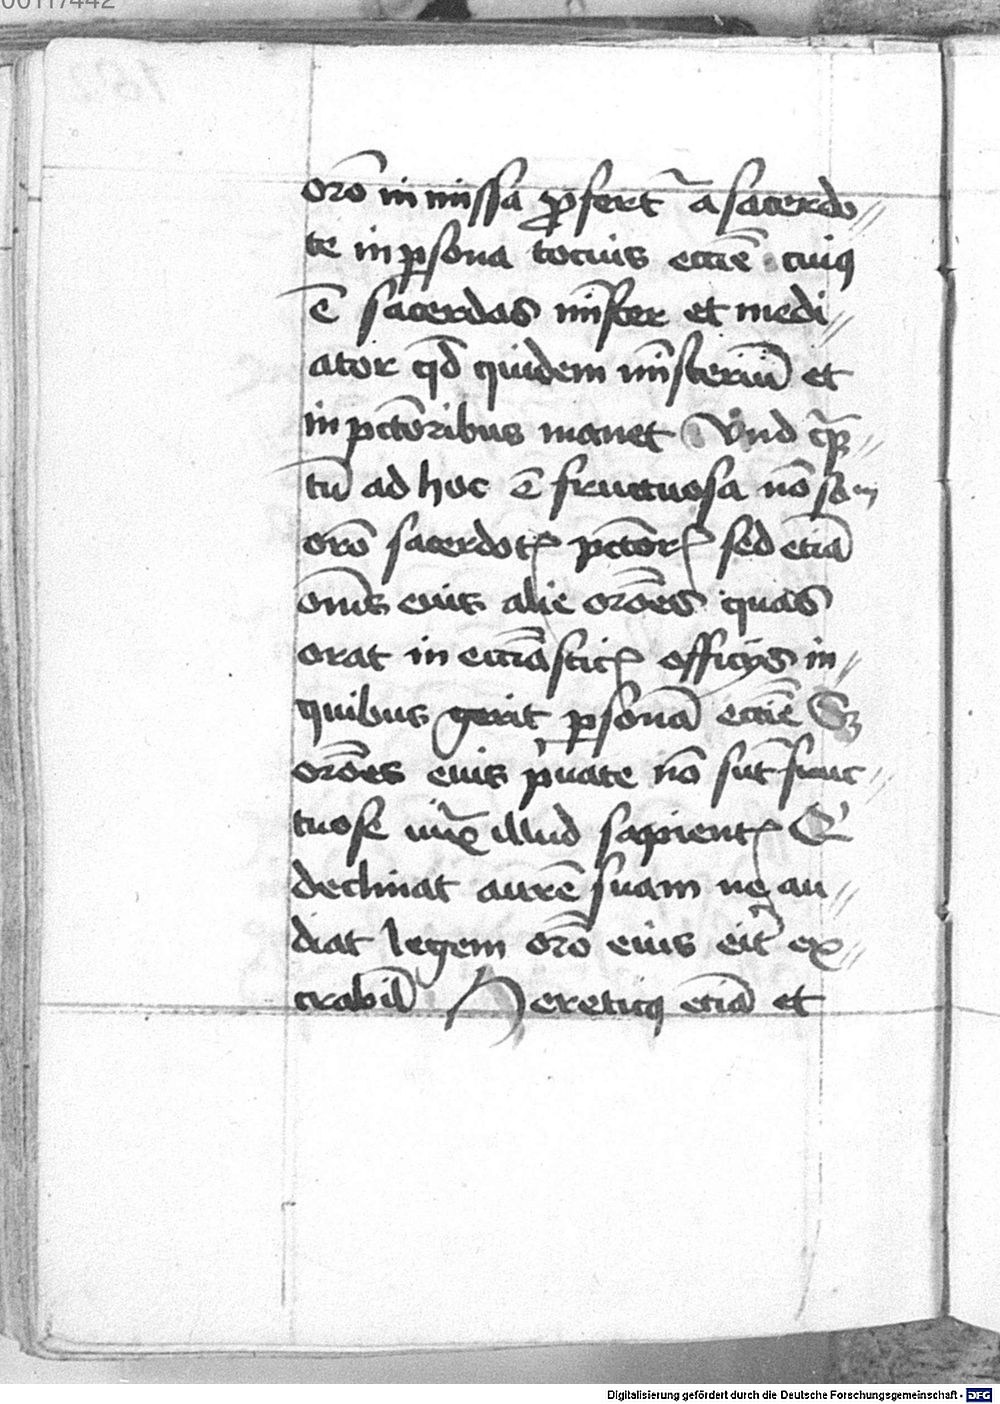 orō in missa ꝓfert᷑ a sacerdo
te in ꝑsona tocius eccīe cuiꝰ
ē sacerdos mīster et medi
ator qd̄ quidem mīsteriū et
in pctōribus manet Vnd
tū ad hoc ē fructuosa nō
orō sacerdotꝭ pctōrꝭ sed etiā
om̄s eius alie orōes quas
orat in ecciāsticꝭ officijs in
quibus gerit ꝑsonā eccīe Sꝫ
orōes eius p̄uate nō sūt fruc
tuose iux᷑ illud sapientꝭ Qͥ
declinat aurē suam ne au
diat legem orō eius eīt ex
crabil̄ Hereticꝰ eciā et
Digitalisierung gefördert durch die Deutsche Forschungsgemeinschaft - DFG